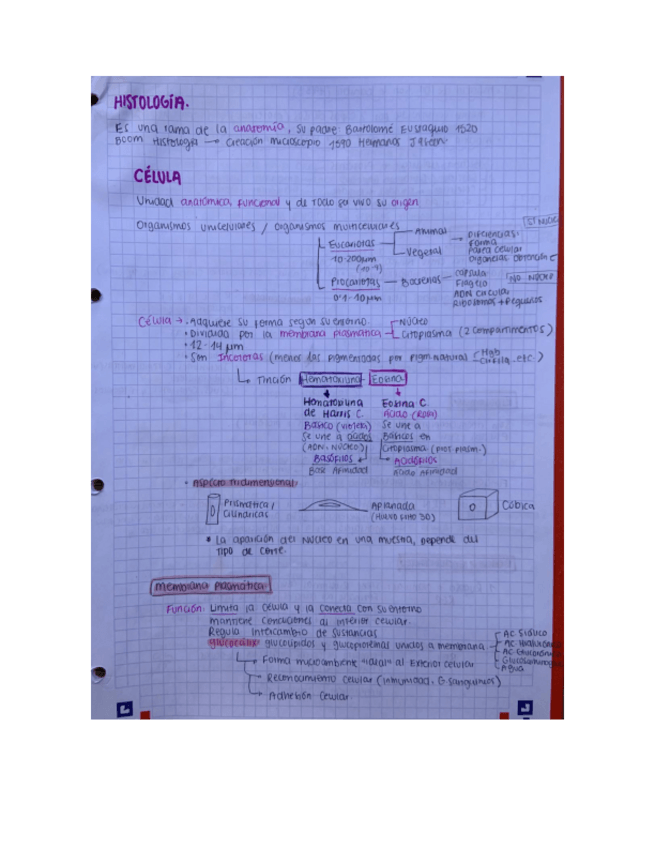 HISTOLOGÍA.
Es una rama de la anatomía, su padre: Bartolomé Eustaquio 1520
Boom Histología → Creación microscopio 1590 Hermanos
CÉLULA
Unidad anatómica, funcional y de TODO ser vivo su origen
Organismos unicelulares / organismos multicelulares
SI NÚCL
Animal
Eucariotas
Vegetal
10-200μm
Diferencias:
Forma
Pared celular
Organelas obtención E
Procariotas — Bacterias
0'1-10μm
cápsula
Flagelo
ADN circular
Ribosomas + pequeños
NO NÚCLEO
Célula → · Adquiere su forma según su entorno.
· Dividida por la membrana plasmática
Núcleo
Citoplasma (2 compartimentos)
· 12-14 μm
· Son Incoloras (menos las pigmentadas por pigm. natural
Hab
etc.)
Tinción Hematoxilina - Eosina
Hematoxilina
de Harris C.
Básico (violeta)
Se une a ácidos
(ADN, NÚCLEO)
Basófilos
Base Afinidad
Eosina C.
Ácido (Rosa)
Se une a
Básicos en
Citoplasma (prot. plasm.)
Acidófilos
Ácido Afinidad
· Aspecto tridimensional:
Prismática /
Cilíndricas
Aplanada
(HUEVO FRITO 3D)
Cúbica
* La aparición del NÚCLEO en una muestra, depende del
tipo de corte.
membrana plasmática
Función: Limita la célula y la conecta con su entorno
mantiene condiciones al interior celular.
Regula intercambio de sustancias
glucocálix: glucolípidos y glucoproteínas unidos a membrana
AC. Siálico
AC. Hialurónico
AC. Glucurónico
Glucosaminog
Agua
Forma microambiente "ideal" al Exterior celular
Reconocimiento celular (inmunidad, G. sanguíneos)
Adhesión Celular.